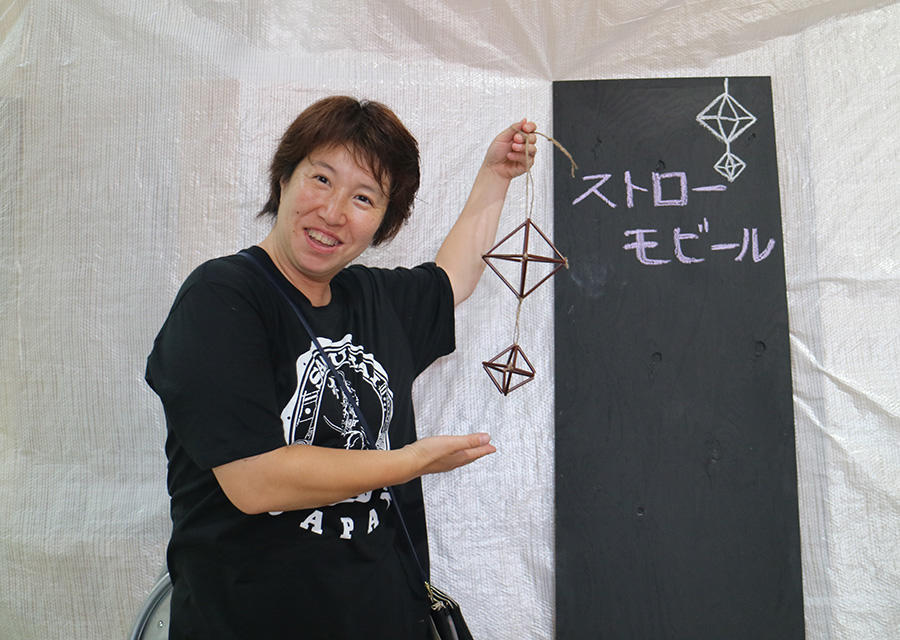 ストロー
モビール
JAPAN